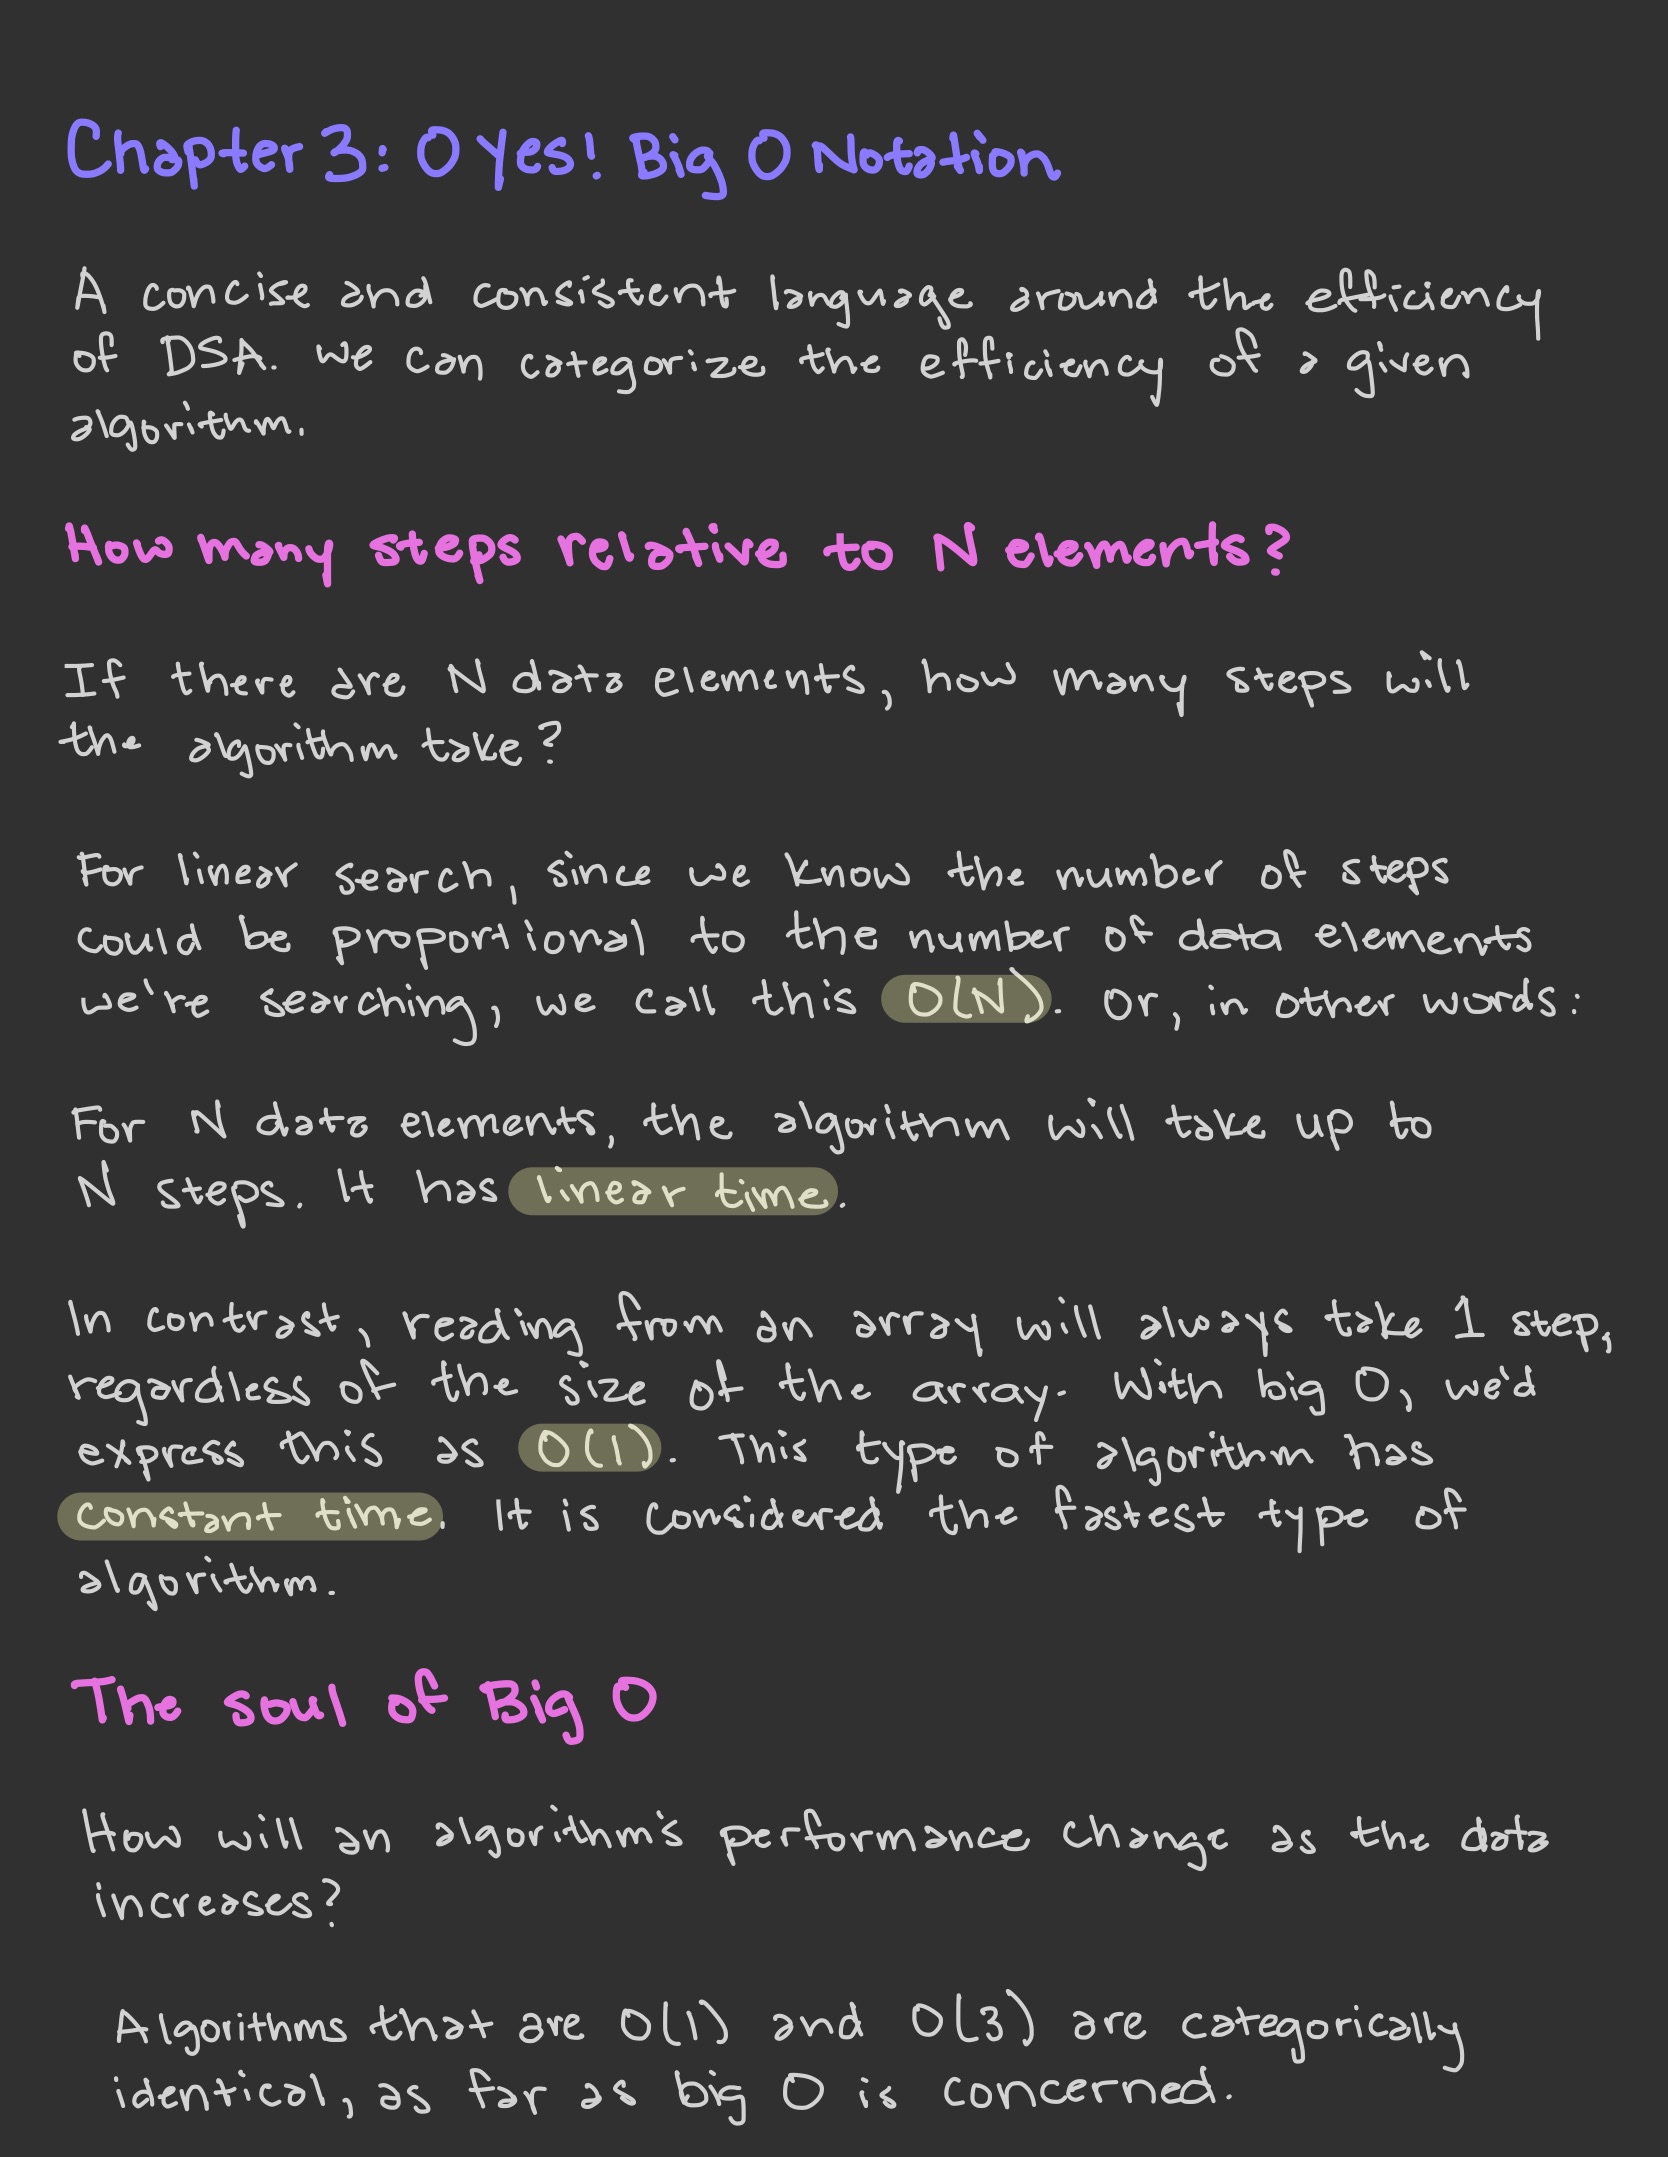 Chapter 3: O Yes! Big O Notation
A concise and consistent language around the efficiency
of DSA. We can categorize the efficiency of a given
algorithm.
How many steps relative to N elements?
If there are N data elements, how many steps will
the algorithm take?
For linear search, since we know the number of steps
could be proportional to the number of data elements
we're searching, we call this O(N). Or, in other words:
For N data elements, the algorithm will take up to
N steps. It has linear time.
In contrast, reading from an array will always take 1 step,
regardless of the size of the array. With big O, we'd
express this as O(1). This type of algorithm has
constant time. It is considered the fastest type of
algorithm.
The soul of Big O
How will an algorithm's performance change as the data
increases?
Algorithms that are O(1) and O(3) are categorically
identical, as far as big O is concerned.